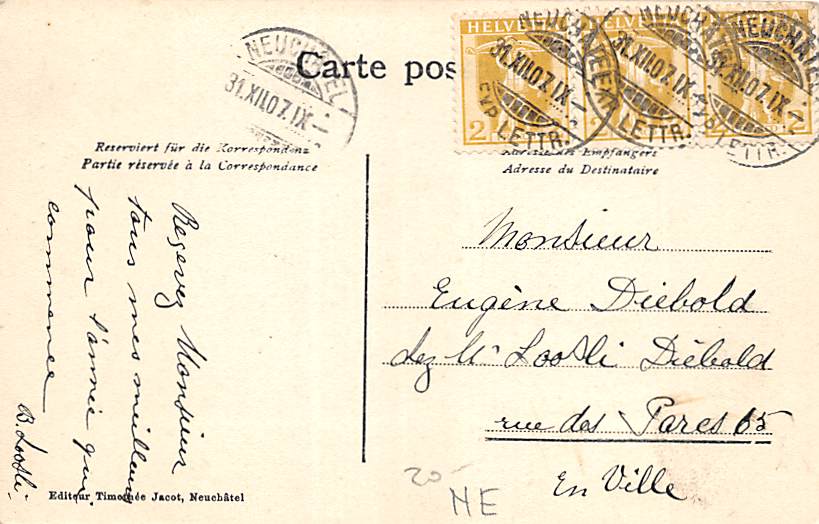 Carte pos
NEUCHÂTEL
31.XII.07.IX-
HELVETIA
2
NEUCHÂTEL
31.XII.07.IX-
EXP. LETTR.
2
NEUCHÂTEL
31.XII.07.IX-
EXP. LETTR.
2
NEUCHÂTEL
31.XII.07.IX-
EXP. LETTR.
Reserviert für die Korrespondenz
Partie réservée à la Correspondance
Adresse des Empfängers
Adresse du Destinataire
Reçevez Monsieur
tous mes meilleurs
pour l'année qui
commence
B. Loosli.
Monsieur
Eugène Diebold
chez Mr Loosli Diébold
rue des Parcs 65
En Ville
20-
NE
Editeur Timothée Jacot, Neuchâtel